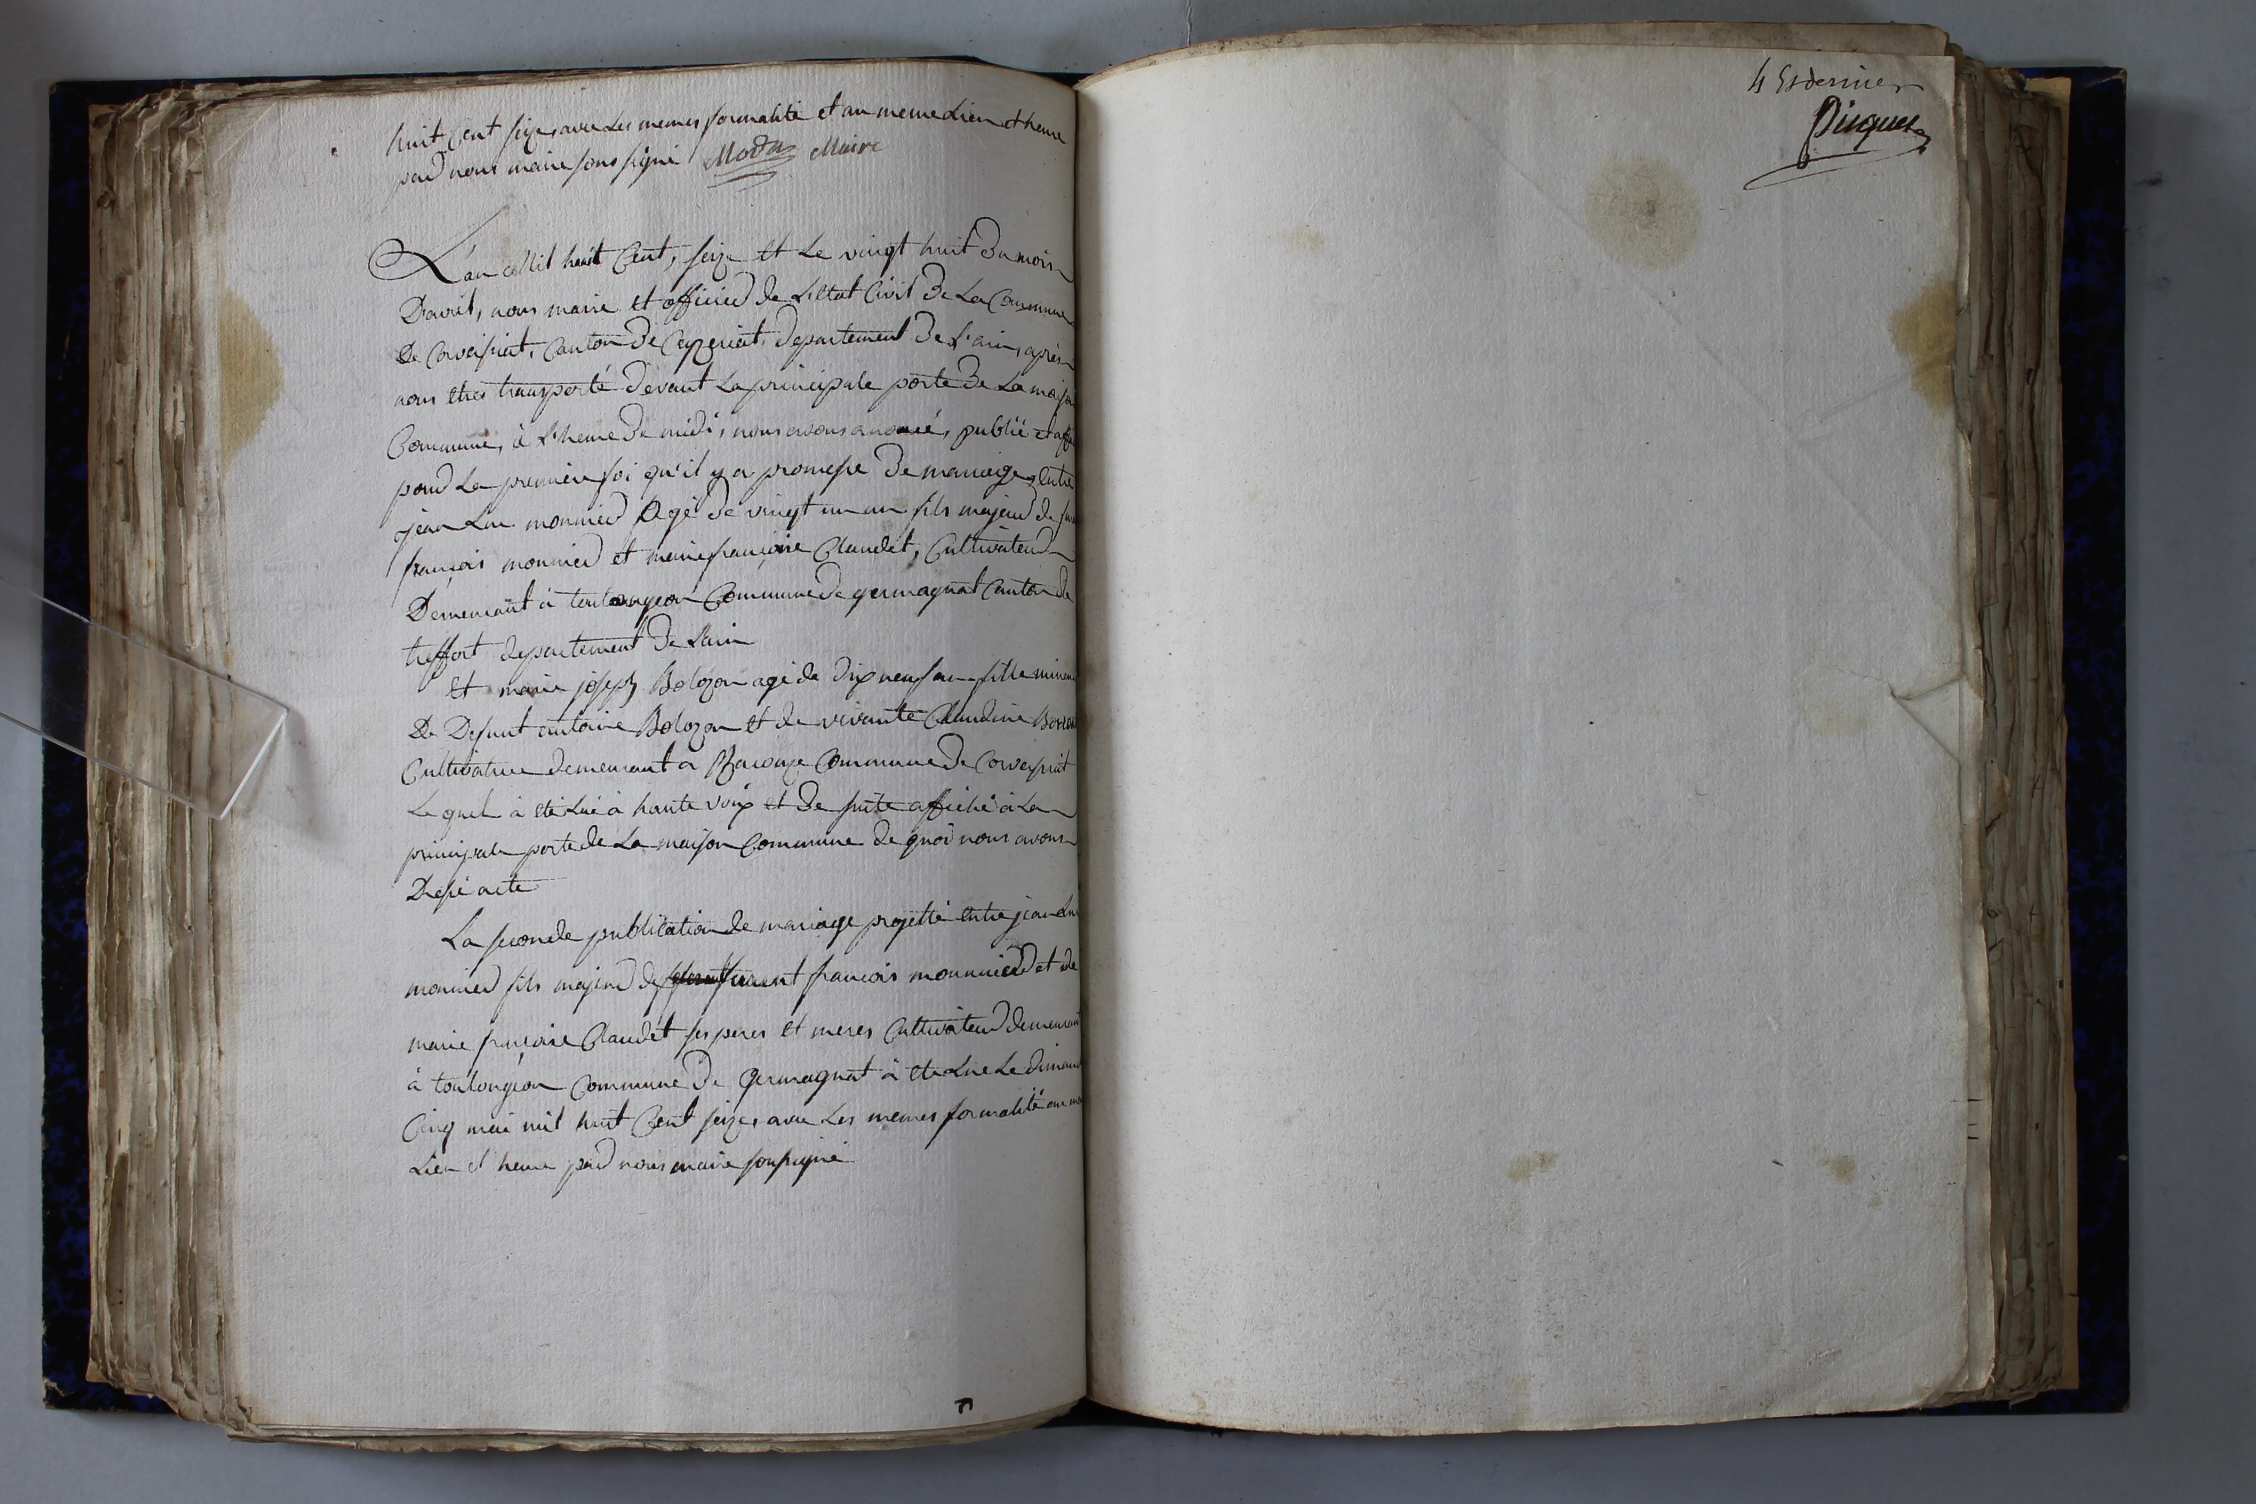 huit Cent seize, avec Les memes formalité et au meme Lieu et heure
par nous maire sous signé Maire
L'an Mil huit Cent, seize et Le vingt huit Du mois
D'avril, nous maire et officier de L'Etat Civil De La Commune
De Corveissiat, Canton De Ceyzeriat, departement De L'ain, après
nous etres transporté devant La principale porte De La maison
Commune, à L'heure De midi, nous avons anoncé, publié et
pour La premiere foi qu'il y a promesse De mariage, Entre
jean Luc monnier agé De vingt un an fils majeur de
françois monnier et marie françoise Claudet, Cultivateur
Demeurant à toulongeon Commune De germagnat Canton de
treffort departement De L'ain
Et marie joseph Bolozon agé de Dix neuf an fille mineur
De Defunt antoine Bolozon et de vivante Claudine
Cultivatrice demeurant a Racouze Commune De Corveissiat
Le quel à été Lue à haute voix et De suite affiché à La
principale porte de La maison Commune de quoi nous avons
Dressé acte
La seconde publication de mariage projetté entre jean Luc
monnier fils majeur de françois monnier et de
marie françoise Claudet ses peres et meres Cultivateur demeurant
à toulongeon Commune De Germagnat à été Lue Le dimanche
Cinq mai mil huit Cent seize, avec Les memes formalité au
Lieu et heure par nous maire soussigné
4 Et dernier
Piquet